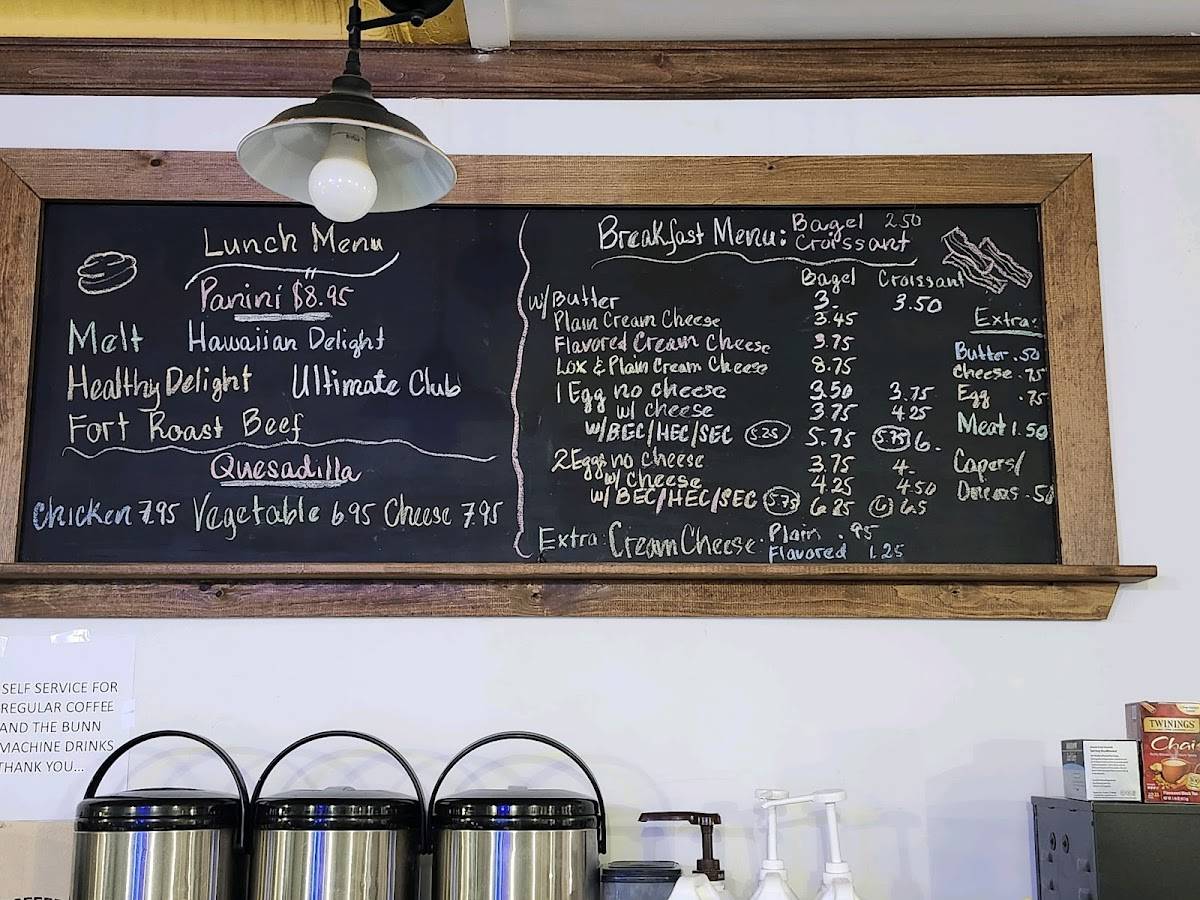 Lunch Menu
Panini $8.95
Melt Hawaiian Delight
Healthy Delight Ultimate Club
Fort Roast Beef
Quesadilla
Chicken 7.95 Vegetable 6.95 Cheese 7.95
Breakfast Menu: Bagel 2.50
Croissant
Bagel Croissant
w/Butter 3. 3.50
Plain Cream Cheese 3.45
Flavored Cream Cheese 3.75
Lox & Plain Cream Cheese 8.75
1 Egg no cheese 3.50 3.75
w/ cheese 3.75 4.25
w/BEC/HEC/SEC 5.25 5.75 5.75 6.
2 Eggs no cheese 3.75 4.
w/cheese 4.25 4.50
w/BEC/HEC/SEC 5.75 6.25 6 6.5
Extra: Cream Cheese: Plain .95
Flavored 1.25
Extra:
Butter .50
Cheese .75
Egg .75
Meat 1.50
Capers/
Onions .50
SELF SERVICE FOR
REGULAR COFFEE
AND THE BUNN
MACHINE DRINKS
THANK YOU...
TWININGS
Chai